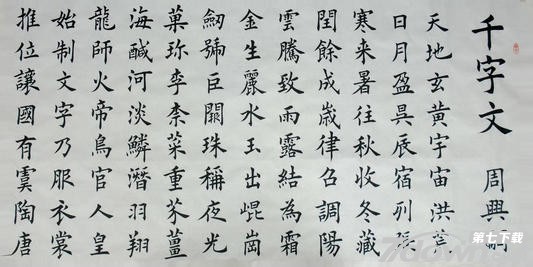 千字文 周興嗣
天地玄黃宇宙洪荒
日月盈昃辰宿列張
寒来暑往秋收冬藏
閏餘成歲律召調陽
雲騰致雨露結為霜
金生麗水玉出崐崗
劒號巨闕珠稱夜光
菓珎李柰菜重芥薑
海鹹河淡鱗潛羽翔
龍師火帝鳥官人皇
始制文字乃服衣裳
推位讓國有虞陶唐
第七下载